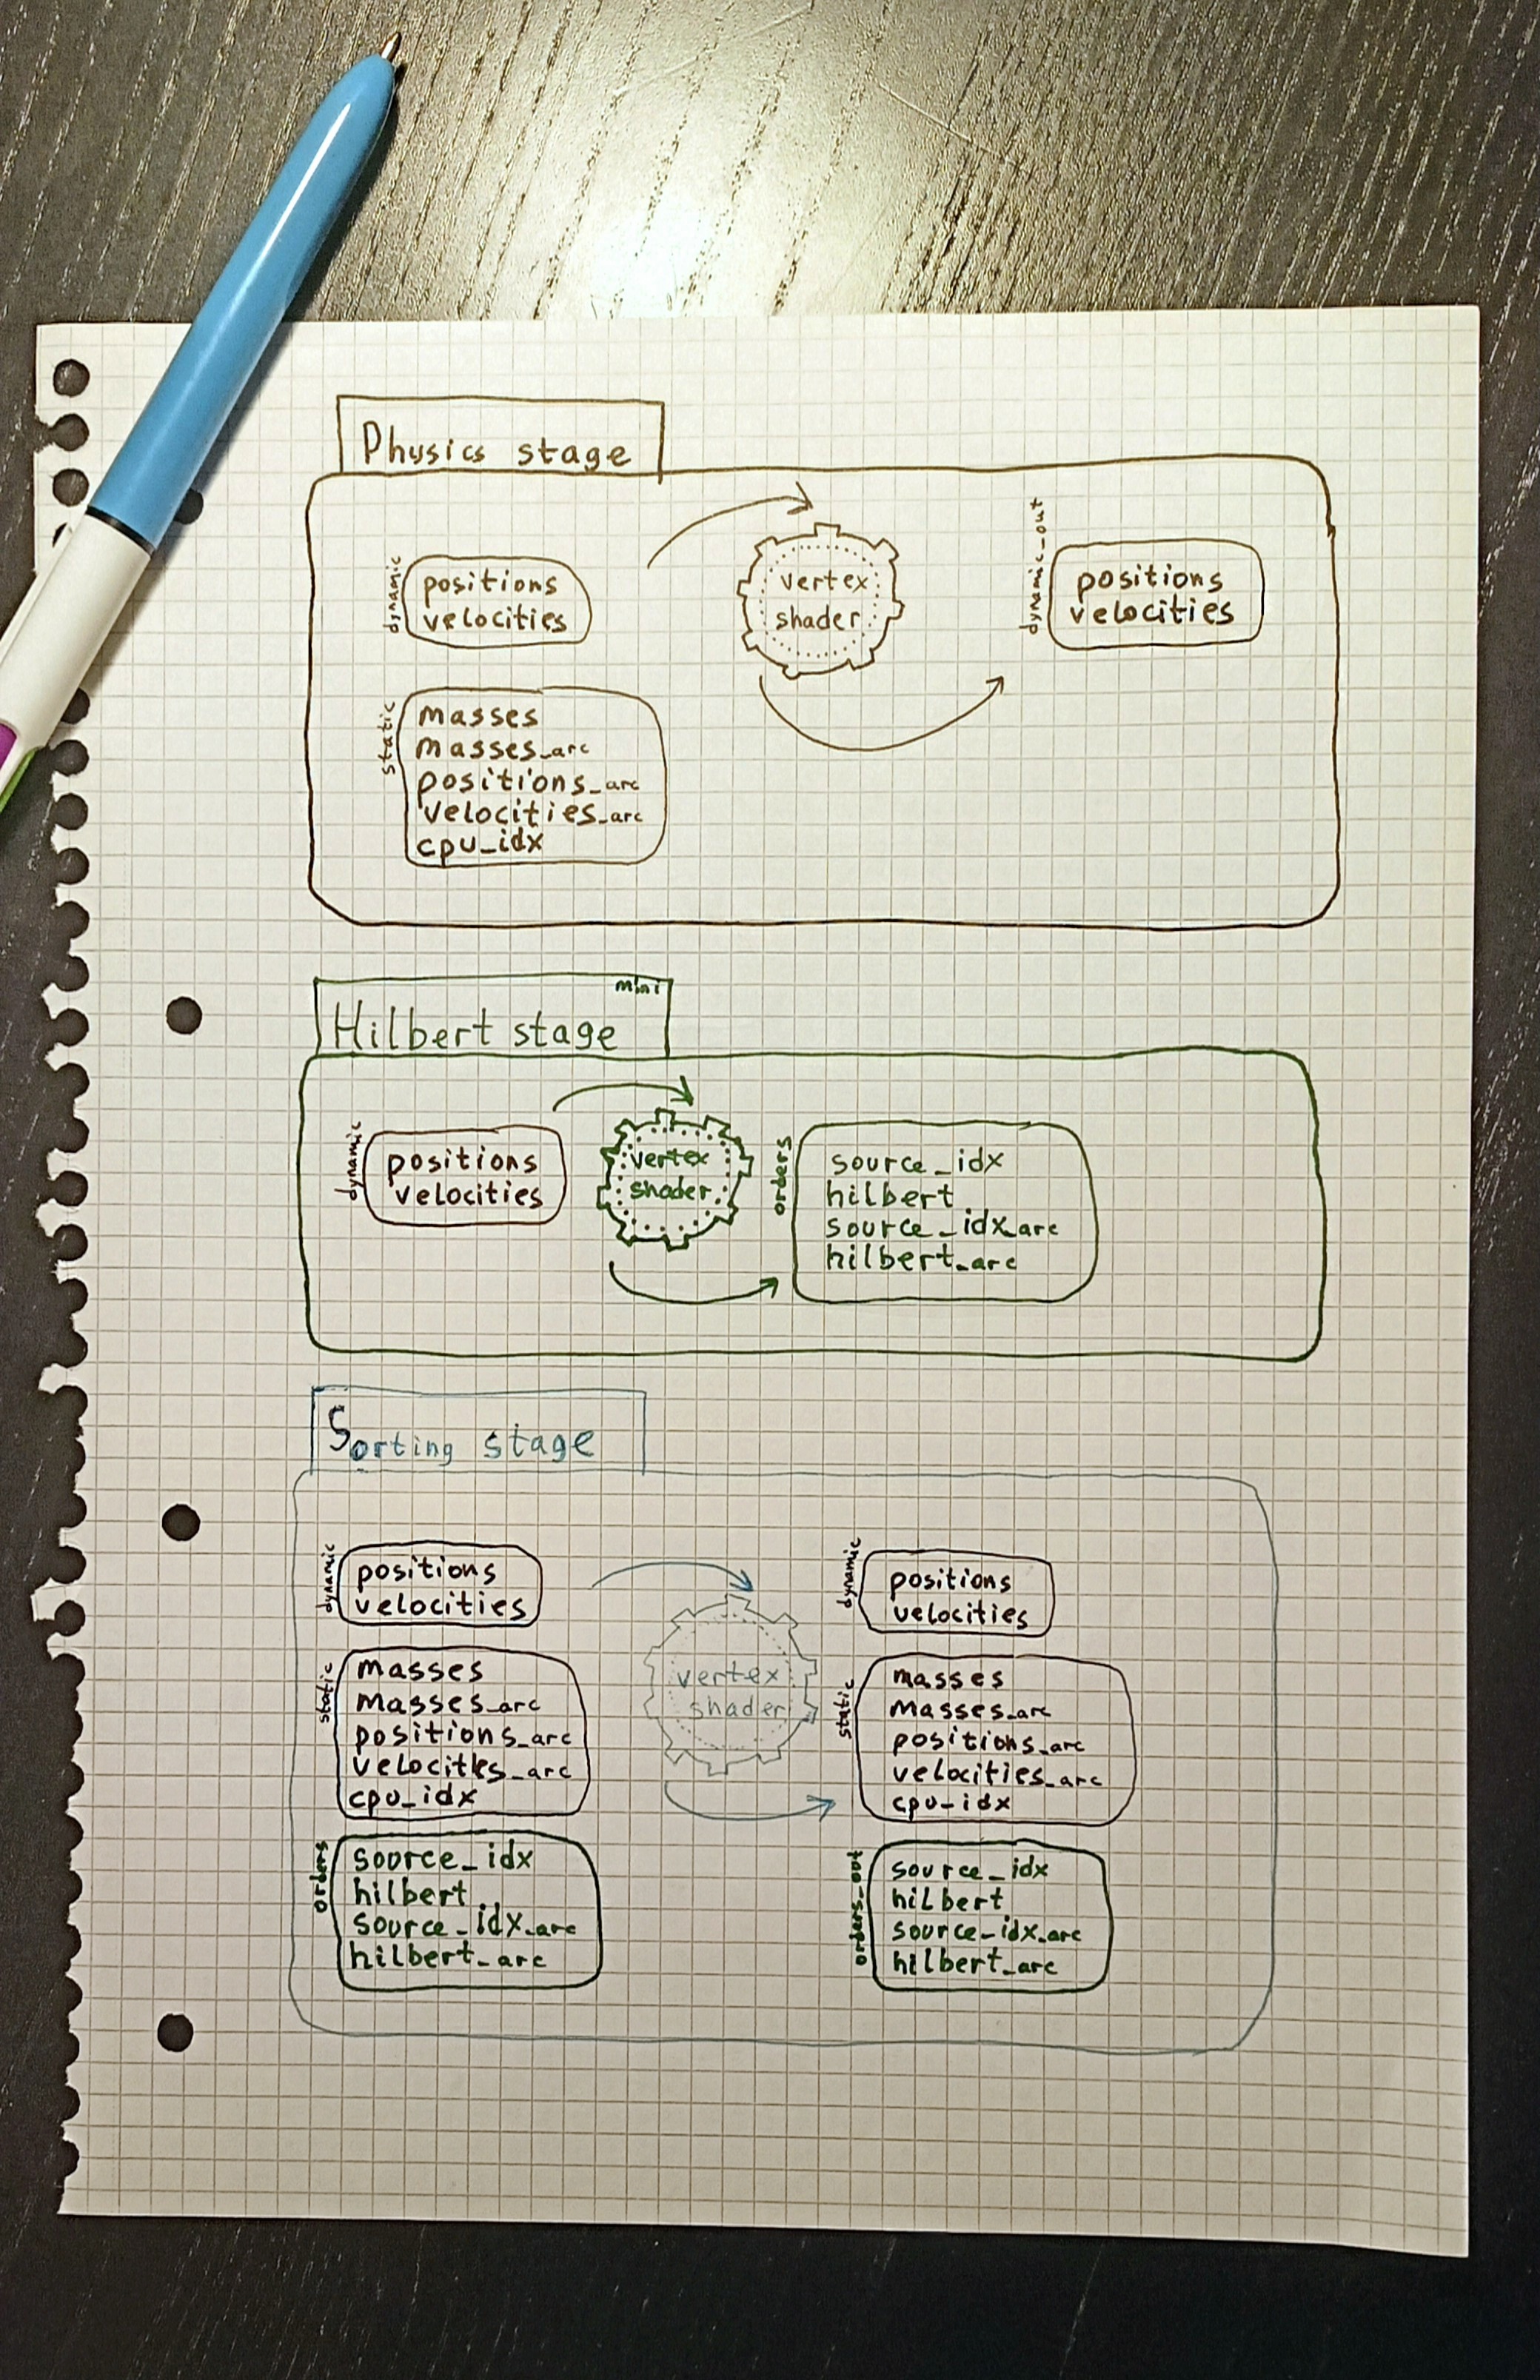 Physics stage
dynamic
positions
velocities
vertex
shader
dynamic_out
positions
velocities
static
masses
masses_arc
positions_arc
velocities_arc
cpu_idx
mini
Hilbert stage
dynamic
positions
velocities
vertex
shader
orders
source_idx
hilbert
source_idx_arc
hilbert_arc
Sorting stage
dynamic
positions
velocities
static
masses
masses_arc
positions_arc
velocities_arc
cpu_idx
orders
source_idx
hilbert
source_idx_arc
hilbert_arc
vertex
shader
dynamic
positions
velocities
static
masses
masses_arc
positions_arc
velocities_arc
cpu_idx
orders_out
source_idx
hilbert
source_idx_arc
hilbert_arc